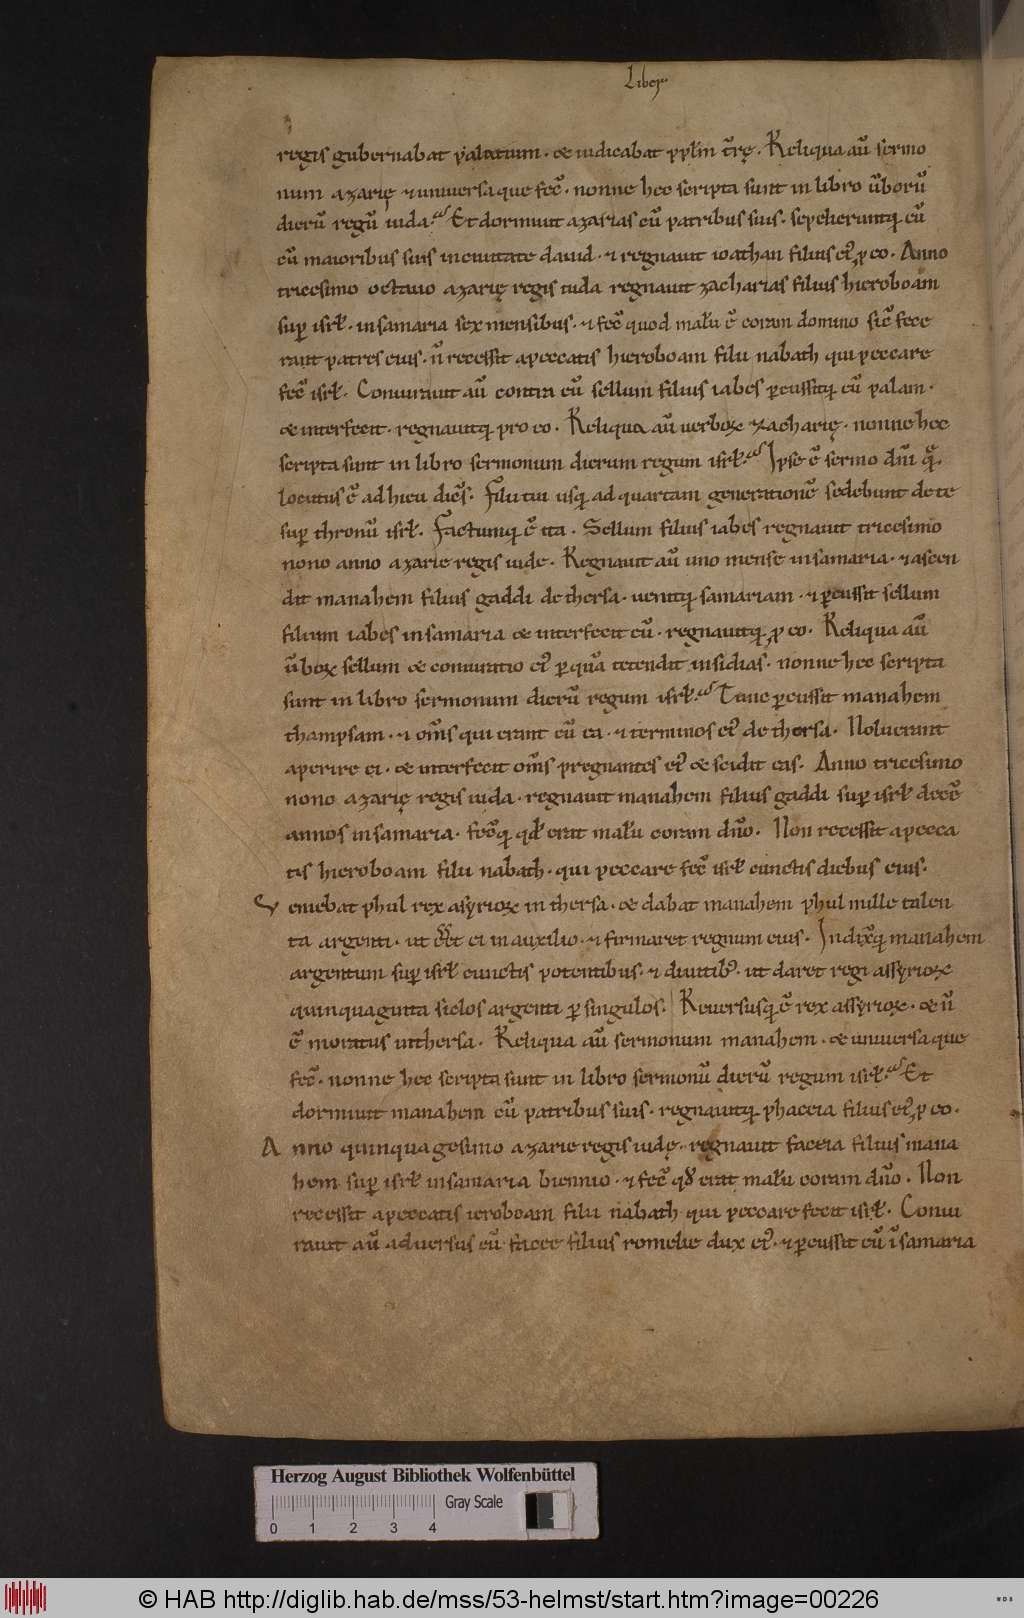 Liber
regis gubernabat palatium · & iudicabat pplm̄ t̄rę . Reliqua aū sermo
num azarię & uniuersa que fec̄ · nonne hec scripta sunt in libro ūborū
dierū regū iuda. Et dormiuit azarias cū patribus suis · sepelieruntq; cū
cū maioribus suis in ciuitate dauid · & regnauit ioathan filius ei; p eo . Anno
tricesimo octauo azarię regis iuda regnauit zacharias filius hieroboam
sup isrł · in samaria sex mensibus · & fec̄ quod malū ē coram domino sic̄ fece
rant patres eius · n̄ recessit a peccatis hieroboam filii nabath qui peccare
fec̄ isrł . Coniurauit aū contra eū sellum filius iabes pcussitq; eū palam ·
& interfecit · regnauitq; pro eo . Reliqua aū uerboꝝ zacharię · nonne hec
scripta sunt in libro sermonum dierum regum isrł. Ipse ē sermo dn̄i q̄
locutus ē ad hieu dic̄s . Filii tui usq; ad quartam generationē sedebunt de te
sup thronū isrł . Factumq; ē ita . Sellum filius iabes regnauit tricesimo
nono anno azarie regis iude . Regnauit aū uno mense in samaria · & ascen
dit manahem filius gaddi de thersa · uenitq; samariam · & pcussit sellum
filium iabes in samaria & interfecit eū · regnauitq; p eo . Reliqua aū
ūboꝝ sellum & coniuratio ei; p quā tetendit insidias · nonne hec scripta
sunt in libro sermonum dierū regum isrł. Tunc pcussit manahem
thampsam · & om̄s qui erant eū ea · & terminos ei; de thersa . Noluerant
aperire ei · & interfecit om̄s pregnantes ei; & scidit eas . Anno tricesimo
nono azarię regis iuda · regnauit manahem filius gaddi sup isrł decē
annos in samaria · fec̄q; qđ erat malū coram dn̄o . Non recessit a pecca
tis hieroboam filii nabath · qui peccare fec̄ isrł cunctis diebus eius .
Veniebat phul rex asyrioꝝ in thersa · & dabat manahem phul mille talen
ta argenti · ut ēet ei in auxilio · & firmaret regnum eius . Indixq; manahem
argentum sup isrł cunctis potentibus · & diuitib; · ut daret regi assyrioꝝ
quinquaginta siclos argenti p singulos . Reuersusq; ē rex assyrioꝝ · & n̄
ē moratus in thersa . Reliqua aū sermonum manahem · & uniuersa que
fec̄ · nonne hec scripta sunt in libro sermonū dierū regum isrł. Et
dormiuit manahem cū patribus suis · regnauitq; phaceia filius ei; p eo .
Anno quinquagesimo azarie regis iudę · regnauit faceia filius mana
hem sup isrł in samaria biennio · & fec̄ qđ erat malū coram dn̄o . Non
recessit a peccatis ieroboam filii nabath qui peccare fecit isrł . Coniu
rauit aū aduersus eū facee filius romelie dux ei; · & pcussit eū ī samaria
Herzog August Bibliothek Wolfenbüttel
Gray Scale
0 1 2 3 4
© HAB http://diglib.hab.de/mss/53-helmst/start.htm?image=00226